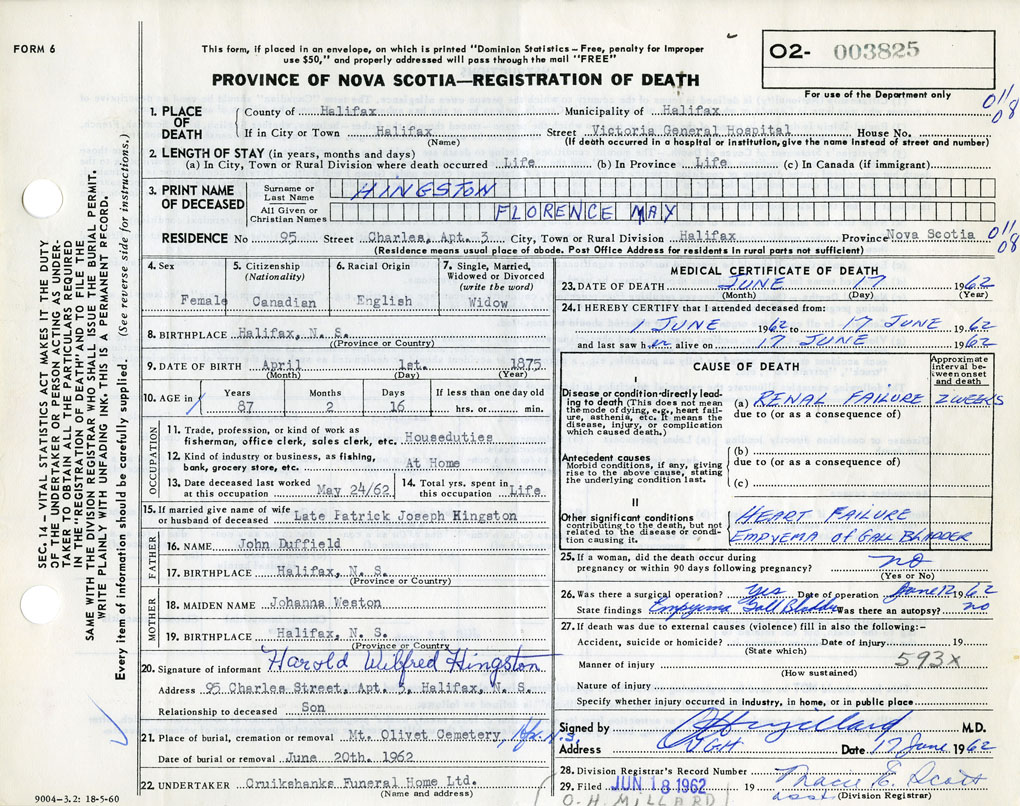 FORM 6
This form, if placed in an envelope, on which is printed "Dominion Statistics – Free, penalty for improper
use $50," and properly addressed will pass through the mail "FREE"
PROVINCE OF NOVA SCOTIA—REGISTRATION OF DEATH
O2- 003825
For use of the Department only
011
08
1. PLACE OF DEATH
County of Halifax Municipality of Halifax
If in City or Town Halifax Street Victoria General Hospital House No.
(Name) (If death occurred in a hospital or institution, give the name instead of street and number)
2. LENGTH OF STAY (in years, months and days)
(a) In City, Town or Rural Division where death occurred Life (b) In Province Life (c) In Canada (if immigrant)
3. PRINT NAME OF DECEASED
Surname or Last Name HINGSTON
All Given or Christian Names FLORENCE MAY
RESIDENCE No 95 Street Charles, Apt. 3 City, Town or Rural Division Halifax Province Nova Scotia
011
08
(Residence means usual place of abode. Post Office Address for residents in rural parts not sufficient)
4. Sex Female
5. Citizenship (Nationality) Canadian
6. Racial Origin English
7. Single, Married, Widowed or Divorced (write the word) Widow
8. BIRTHPLACE Halifax, N. S.
(Province or Country)
9. DATE OF BIRTH April 1st. 1875
(Month) (Day) (Year)
10. AGE in Years 87 Months 2 Days 16 If less than one day old hrs. or min.
OCCUPATION
11. Trade, profession, or kind of work as
fisherman, office clerk, sales clerk, etc. Houseduties
12. Kind of industry or business, as fishing,
bank, grocery store, etc. At Home
13. Date deceased last worked
at this occupation May 24/62
14. Total yrs. spent
in this occupation Life
15. If married give name of wife
or husband of deceased Late Patrick Joseph Hingston
FATHER
16. NAME John Duffield
17. BIRTHPLACE Halifax, N. S.
(Province or Country)
MOTHER
18. MAIDEN NAME Johanna Weston
19. BIRTHPLACE Halifax, N. S.
(Province or Country
20. Signature of informant Harold Wilfred Hingston
Address 95 Charles Street, Apt. 3, Halifax, N. S.
Relationship to deceased Son
21. Place of burial, cremation or removal Mt. Olivet Cemetery, Hfx. N.S.
Date of burial or removal June 20th. 1962
22. UNDERTAKER Cruikshanks Funeral Home Ltd.
(Name and address)
9004-3.2: 18-5-60
MEDICAL CERTIFICATE OF DEATH
23. DATE OF DEATH JUNE 17 1962
(Month) (Day) (Year)
24. I HEREBY CERTIFY that I attended deceased from:
1 JUNE 1962 to 17 JUNE 1962
and last saw her alive on 17 JUNE 1962
CAUSE OF DEATH
Approximate interval between onset and death
I
Disease or condition directly leading to death (This does not mean
the mode of dying, e.g., heart failure, asthenia, etc. It means the
disease, injury, or complication
which caused death.)
(a) RENAL FAILURE 2 WEEKS
due to (or as a consequence of)
Antecedent causes
Morbid conditions, if any, giving
rise to the above cause, stating
the underlying condition last.
(b)
due to (or as a consequence of)
(c)
II
Other significant conditions
contributing to the death, but not
related to the disease or condition causing it.
HEART FAILURE
EMPYEMA OF GALL BLADDER
25. If a woman, did the death occur during
pregnancy or within 90 days following pregnancy? no
(Yes or No)
26. Was there a surgical operation? Yes Date of operation June 12 1962
State findings Empyema Gall Bladder Was there an autopsy? no
27. If death was due to external causes (violence) fill in also the following:–
Accident, suicide or homicide? Date of injury 19
(State which)
593x
Manner of injury
(How sustained)
Nature of injury
Specify whether injury occurred in industry, in home, or in public place
Signed by M.D.
Address VGH Date 17 June 1962
28. Division Registrar's Record Number
29. Filed JUN 18 1962 19 Scott
(Division Registrar)
asst.
(O. H. MILLARD)
SEC. 14 – VITAL STATISTICS ACT MAKES IT THE DUTY
OF THE UNDERTAKER OR PERSON ACTING AS UNDERTAKER TO OBTAIN ALL THE PARTICULARS REQUIRED
IN THE "REGISTRATION OF DEATH" AND TO FILE THE
SAME WITH THE DIVISION REGISTRAR WHO SHALL ISSUE THE BURIAL PERMIT.
WRITE PLAINLY WITH UNFADING INK. THIS IS A PERMANENT RECORD.
Every item of information should be carefully supplied. (See reverse side for instructions.)